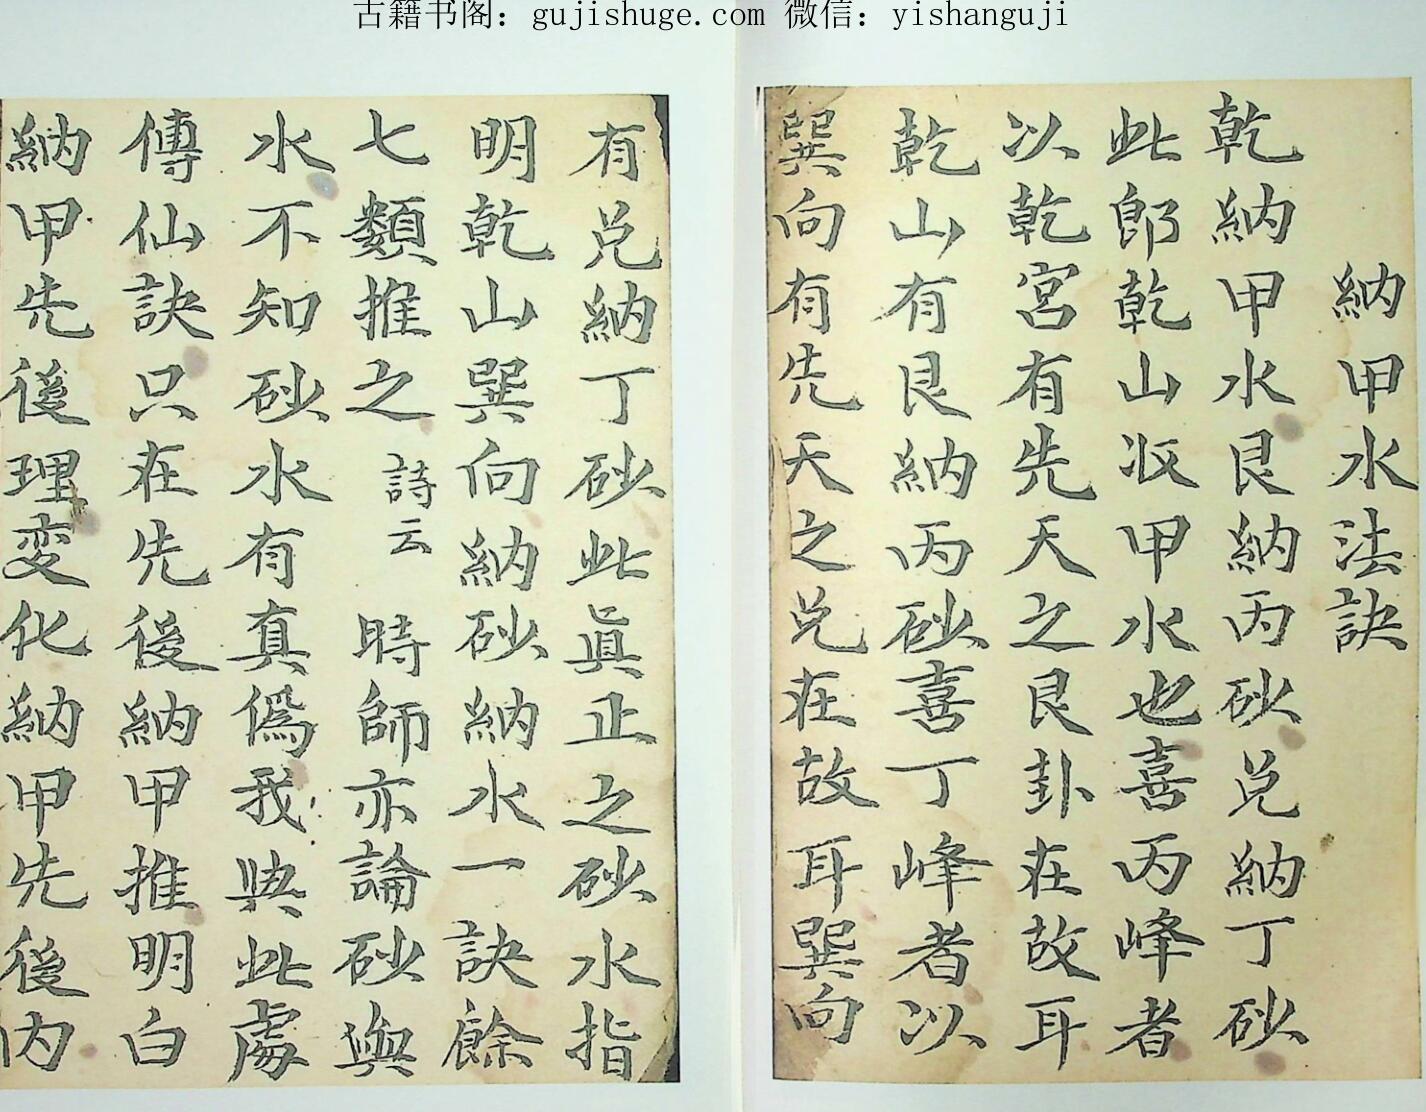 古籍书阁：gujishuge.com 微信：yishanguji
納甲水法訣
乾納甲水艮納丙砂兑納丁砂
此郎乾山収甲水也喜丙峰者
以乾宮有先天之艮卦在故耳
乾山有艮納丙砂喜丁峰者以
巽向有先天之兑在故耳巽向
有兑納丁砂此眞正之砂水指
明乾山巽向納砂納水一訣餘
七類推之 詩云 時師亦論砂與
水不知砂水有真偽我與此處
傳仙訣只在先後納甲推明白
納甲先後理变化納甲先後内